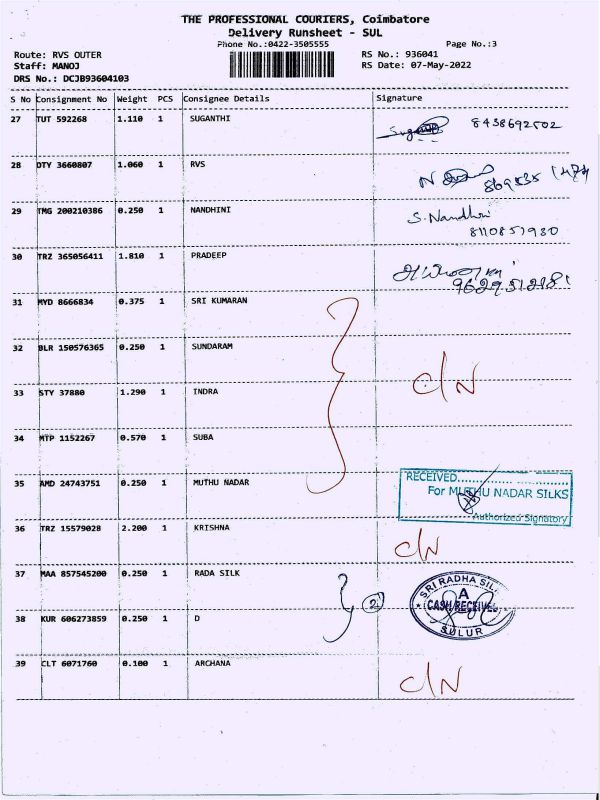 THE PROFESSIONAL COURIERS, Coimbatore
Delivery Runsheet - SUL
Phone No.:0422-3505555
Page No.:3
Route: RVS OUTER
RS No.: 936041
Staff: MANOJ
RS Date: 07-May-2022
DRS No.: DCJB93604103
S No Consignment No Weight PCS Consignee Details Signature
27 TUT 592268 1.110 1 SUGANTHI 8438692502
28 DTY 3660807 1.060 1 RVS
29 TMG 200210386 0.250 1 NANDHINI S. Nandhini
8110851980
30 TRZ 365056411 1.810 1 PRADEEP
31 MYD 8666834 0.375 1 SRI KUMARAN
32 BLR 150576365 0.250 1 SUNDARAM
C/N
33 STY 37880 1.290 1 INDRA
34 MTP 1152267 0.570 1 SUBA
35 AMD 24743751 0.250 1 MUTHU NADAR
RECEIVED
For MUTHU NADAR SILKS
Authorized Signatory
36 TRZ 15579028 2.200 1 KRISHNA C/N
37 MAA 857545200 0.250 1 RADA SILK
2
SRI RADHA SIL
A
CASH RECEIVED
SULUR
38 KUR 606273859 0.250 1 D
39 CLT 6071760 0.100 1 ARCHANA C/N